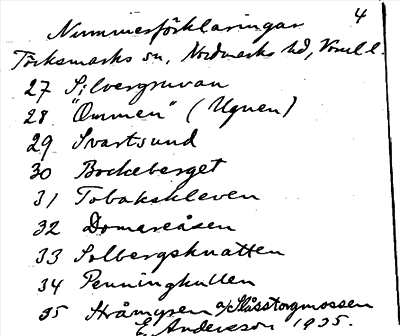 4
Nummerförklaringar
Töcksmarks sn, Nordmarks hd, Vrml l.
27 Silvergruvan
28 "Ommen" (Ugnen)
29 Svartsund
30 Bockeberget
31 Tobakskleven
32 Domareåsen
33 Solbergsknatten
34 Penningkullen
35 Stråmyren a/Slåsstorgmossen
E. Andersson 1935.